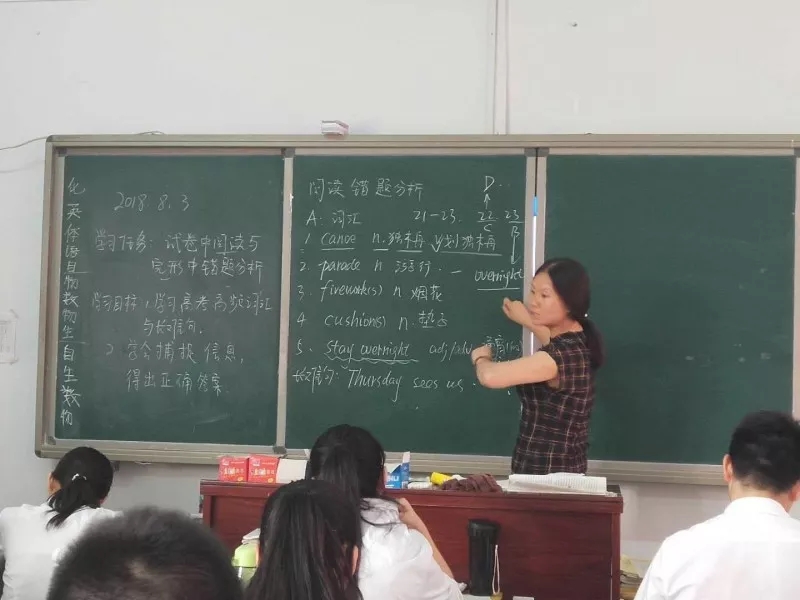 化英体语自物数物生自生数物
2018.8.3
学习任务：试卷中阅读与
完形中错题分析
学习目标 1.学习高考高频词汇
与长难句.
2 学会捕捉信息,
得出正确答案.
阅读错题分析
D
A: 词汇 21-23. 22. 23
C B
1 canoe n.独木舟 v.划独木舟
2. parade n 游行. overnight
3. firework(s) n.烟花
4 cushion(s) n.垫子
5. stay overnight adj/adv.
长难句: Thursday sees us